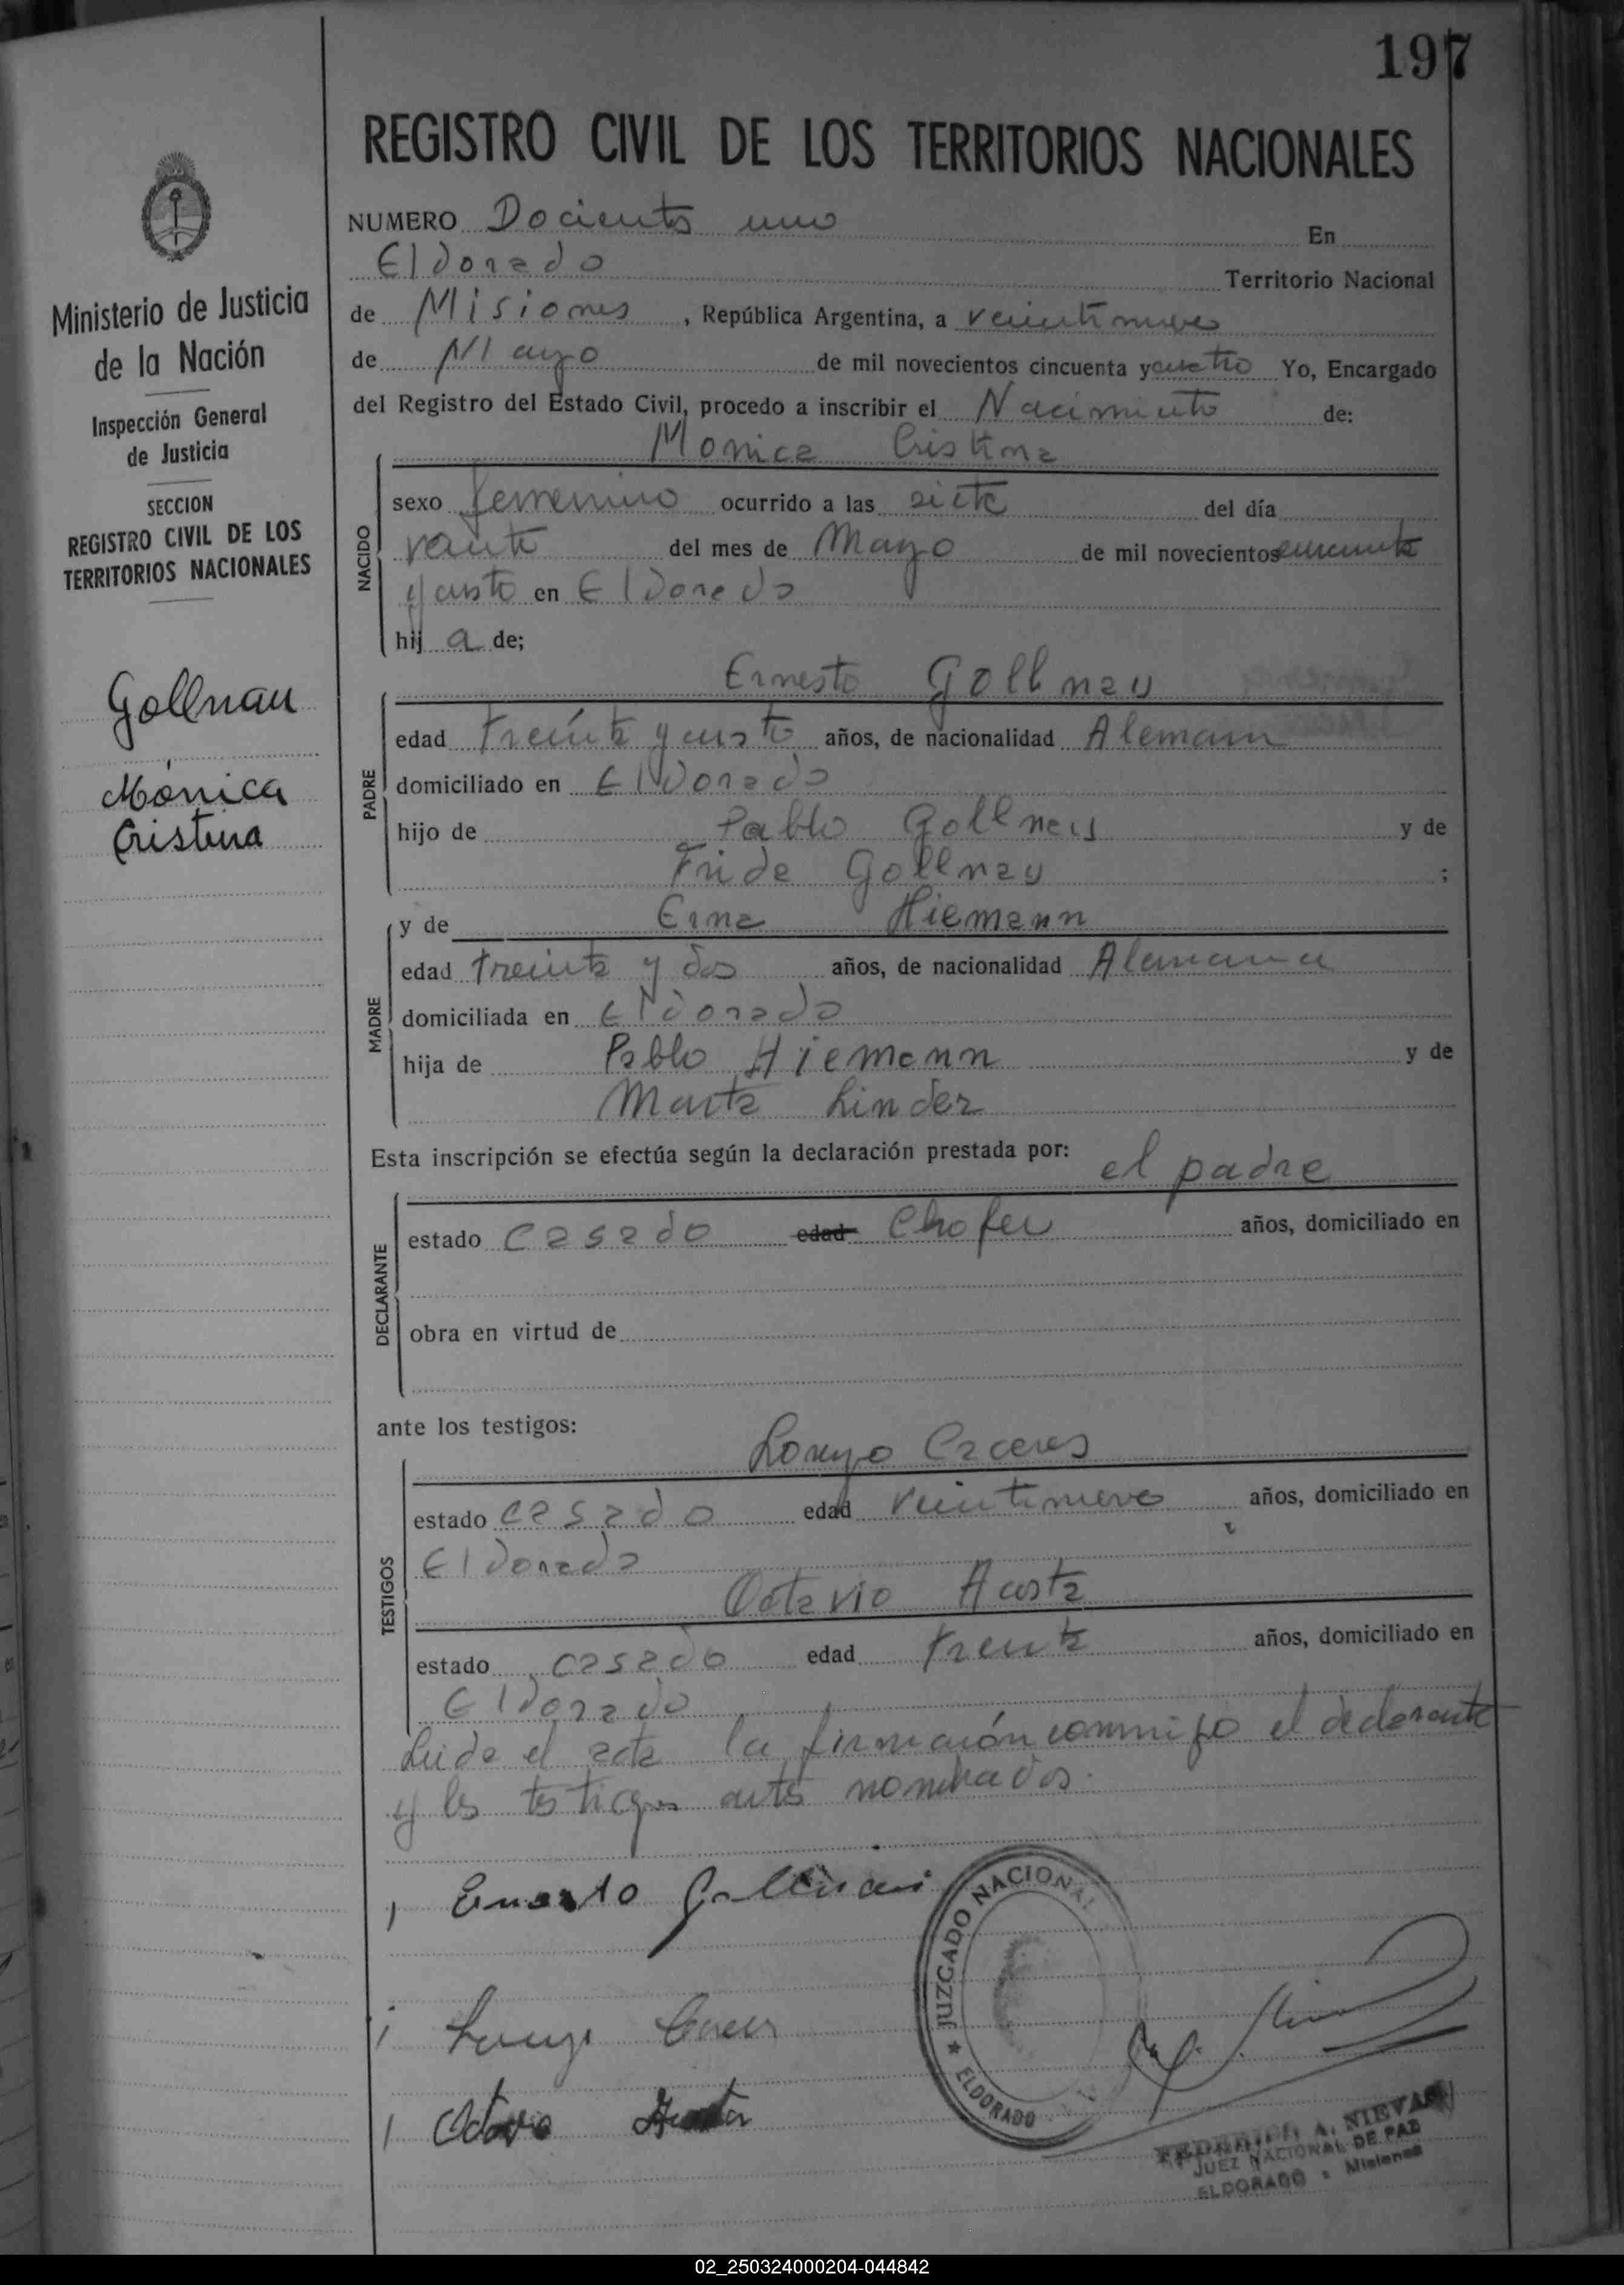 197
REGISTRO CIVIL DE LOS TERRITORIOS NACIONALES
Ministerio de Justicia
de la Nación
Inspección General
de Justicia
SECCION
REGISTRO CIVIL DE LOS
TERRITORIOS NACIONALES
Gollnau
Mónica
Cristina
NUMERO Docientos uno En
Eldorado Territorio Nacional
de Misiones, República Argentina, a veintinueve
de Mayo de mil novecientos cincuenta y cuatro Yo, Encargado
del Registro del Estado Civil, procedo a inscribir el Nacimiento de:
Monica Cristina
NACIDO
sexo femenino ocurrido a las siete del día
veinte del mes de Mayo de mil novecientos cincuenta
y cuatro en Eldorado
hij a de;
Ernesto Gollnau
PADRE
edad treinta y cuatro años, de nacionalidad Alemana
domiciliado en Eldorado
hijo de Pablo Gollnau y de
Frida Gollnau ;
MADRE
y de Erna Hiemann
edad treinta y dos años, de nacionalidad Alemana
domiciliada en Eldorado
hija de Pablo Hiemann y de
Marta Linder
Esta inscripción se efectúa según la declaración prestada por: el padre
DECLARANTE
estado casado edad Chofer años, domiciliado en
obra en virtud de
ante los testigos:
Lorenzo Caceres
TESTIGOS
estado casado edad veintinueve años, domiciliado en
Eldorado
Octavio Acosta
estado casado edad treinta años, domiciliado en
Eldorado
Leida el acta la firmarón conmigo el declarante
y los testigos antes nombrados.
Ernesto Gollnau
JUZGADO NACIONAL
★ ELDORADO
Octavio Acosta
FEDERICO A. NIEVAS
JUEZ NACIONAL DE PAZ
ELDORADO - Misiones
02_250324000204-044842